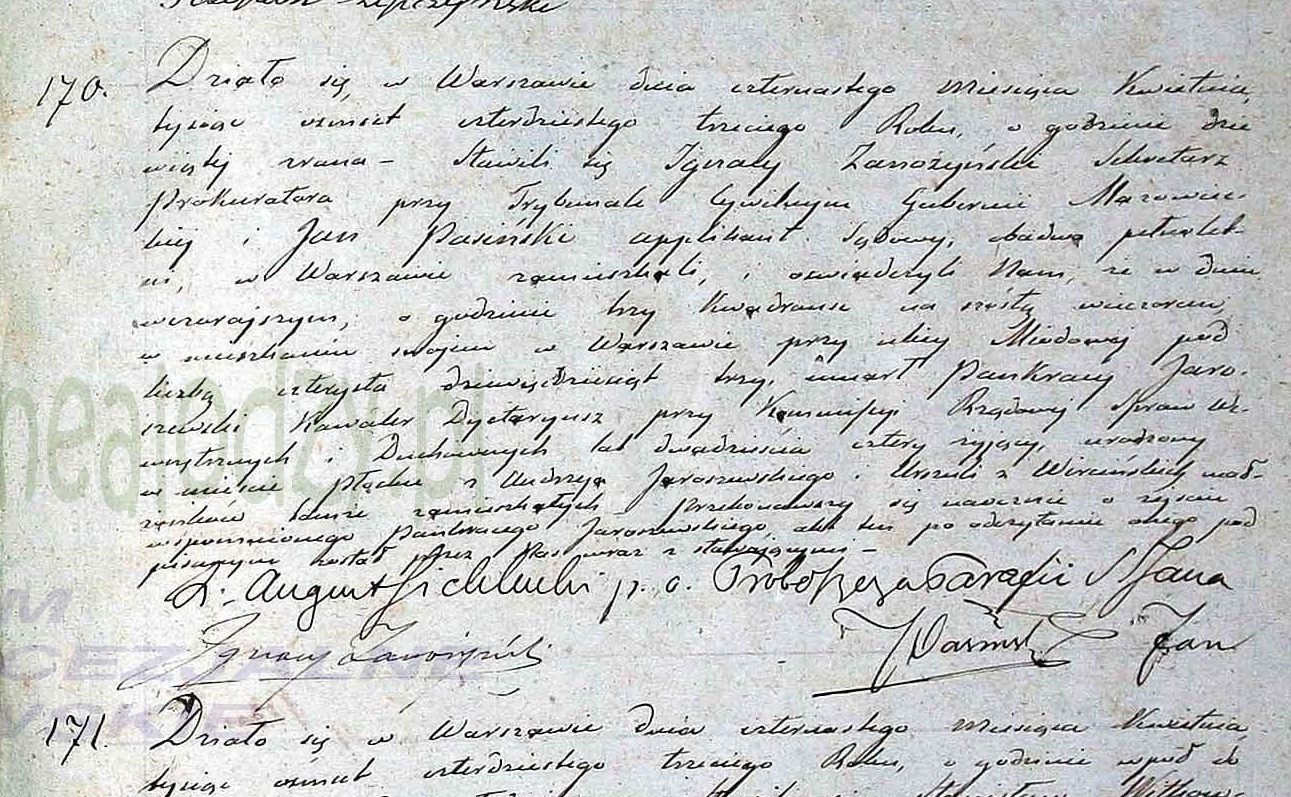 170. Działo się, w Warszawie dnia czternastego miesiąca Kwietnia,
tysiąc osmset czterdziestego trzeciego Roku, o godzinie dzie
wiątej zrana – Stawili się Ignacy Zawożyński Sekretarz
Prokuratora przy Trybunale Cywilnym Gubernii Mazowiec-
kiej i Jan Pasiński applikant Sądowy, obadwa pełnolet-
ni, w Warszawie zamieszkali, i oswiadczyli Nam, że w dniu
wczorajszym, o godzinie trzy kwadranse na szóstą wieczorem,
w mieszkaniu swojem w Warszawie przy ulicy Miodowej pod
liczbą czterysta dziewięćdziesiąt trzy, umarł Pankracy Jaro-
szewski Kawaler Dyetaryusz przy Kommissyi Rządowej Spraw We-
wnętrznych i Duchownych lat dwadzieścia cztery żyjący, urodzony
w mieście Płocku z Andrzeja Jaroszewskiego i Urszuli z małż-
zonków tamże zamieszkałych – Przekonawszy się naocznie o zejściu
wspomnionego Pankracego Jaroszewskiego, akt ten po odczytaniu onego pod
pisanym został przez Nas wraz z stawającymi –
X. August p. o. Proboszcza Parafii S Jana
Ignacy Zawożyński JPasiński Jan
171. Działo się, w Warszawie dnia czternastego miesiąca Kwietnia
tysiąc osmset czterdziestego trzeciego Roku, o godzinie wpół do
nealodzy.pl